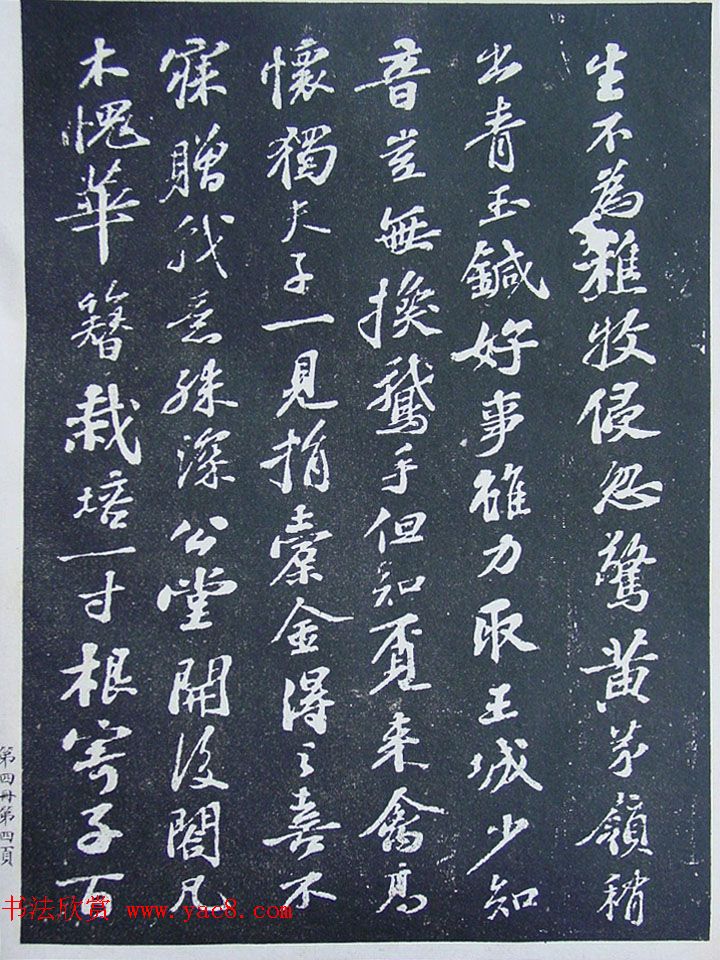 生不為樵牧侵忽驚黃茅嶺稍
出青玉鍼好事雖力取王城少知
音豈無換鵝手但知覓來禽高
懷獨夫子一見捐橐金得之喜不
寐贈我意殊深公堂開後閤凡
木愧華簪栽培一寸根寄子百
第四冊第四頁
书法欣赏 www.yac8.com